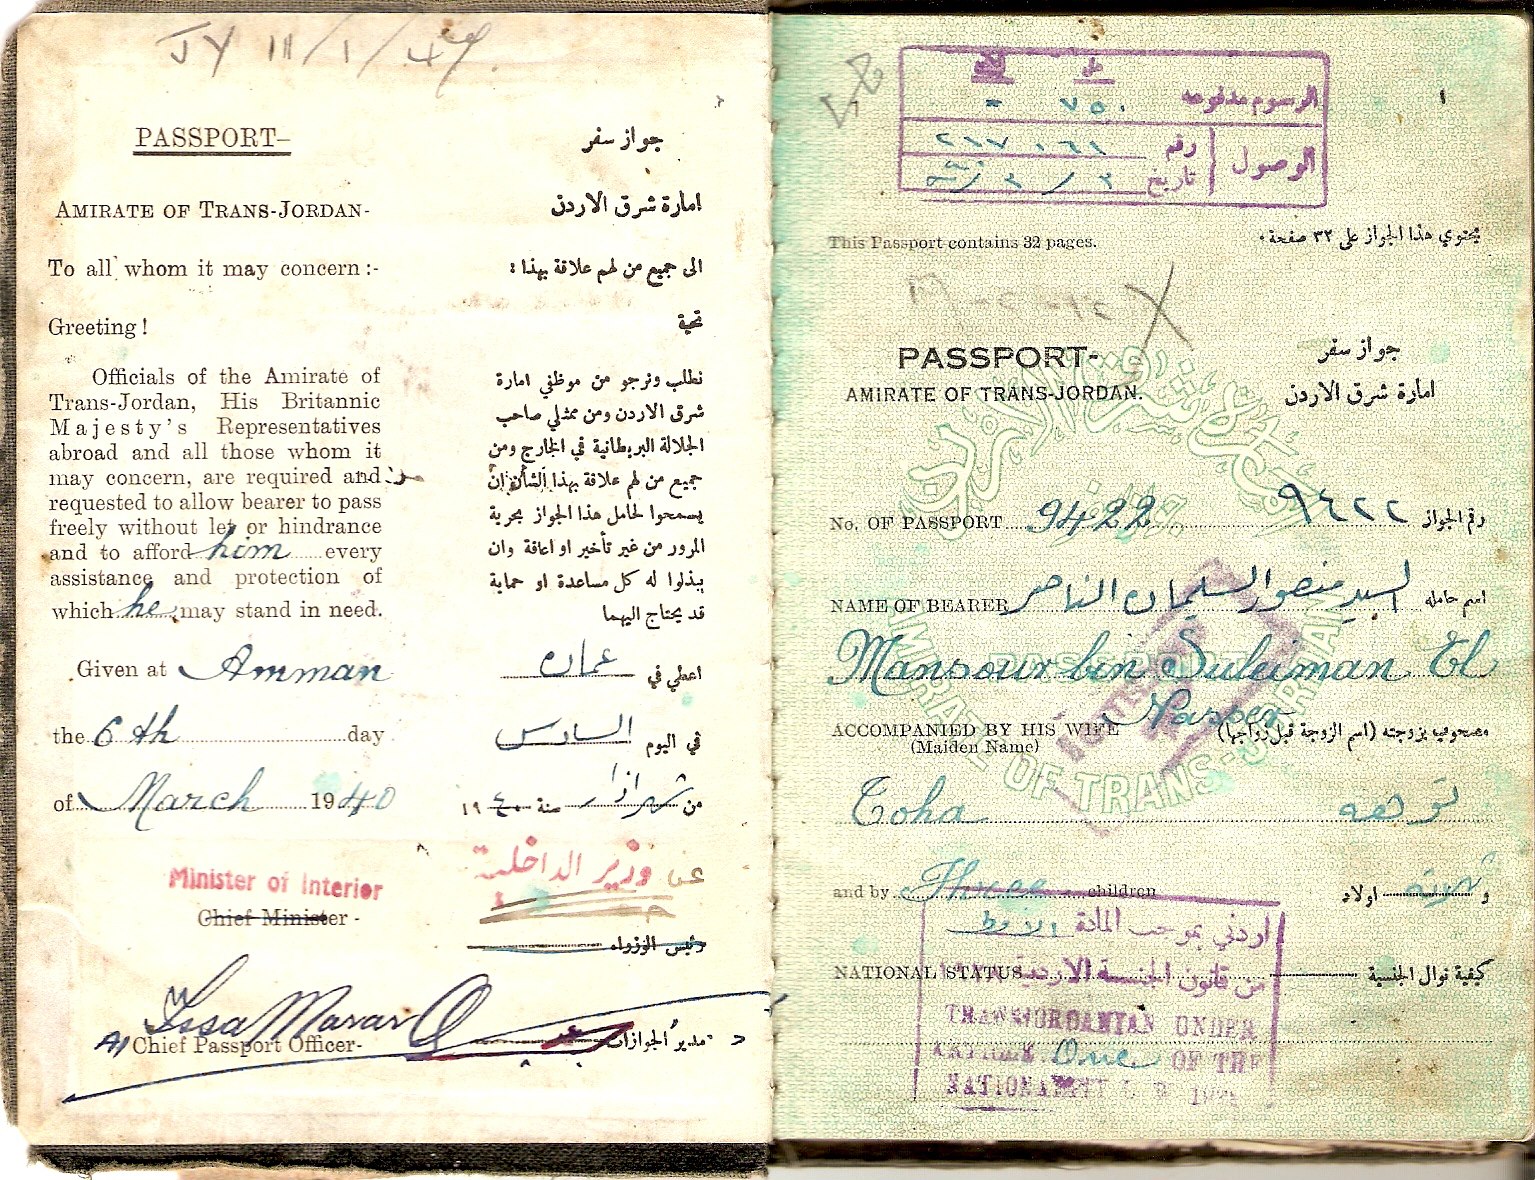 PASSPORT-
جواز سفر
AMIRATE OF TRANS-JORDAN-
امارة شرق الاردن
To all whom it may concern :-
الى جميع من لهم علاقة بهذا :
Greeting !
تحية
Officials of the Amirate of
Trans-Jordan, His Britannic
Majesty's Representatives
abroad and all those whom it
may concern, are required and
requested to allow bearer to pass
freely without let or hindrance
and to afford him every
assistance and protection of
which he may stand in need.
نطلب ونرجو من موظفي امارة
شرق الاردن ومن ممثلي صاحب
الجلالة البريطانية في الخارج ومن
جميع من لهم علاقة بهذا الشأن ان
يسمحوا لحامل هذا الجواز بحرية
المرور من غير تأخير او اعاقة وان
يبذلوا له كل مساعدة او حماية
قد يحتاج اليهما
Given at Amman
اعطي في عمان
the 6th day
في اليوم السادس
of March 1940
من شهر اذار سنة ١٩٤٠
Minister of Interior
عن وزير الداخلية
Chief Minister -
رئيس الوزراء
Issa Marar
Chief Passport Officer-
مدير الجوازات
١
الرسوم مدفوعه ٧٥٠ -
الوصول
رقم ٢١٧٠٦١
تاريخ
This Passport contains 32 pages.
يحتوي هذا الجواز على ٣٢ صفحة.
PASSPORT-
جواز سفر
AMIRATE OF TRANS-JORDAN.
امارة شرق الاردن
No. OF PASSPORT 9422
رقم الجواز ٩٤٢٢
NAME OF BEARER
اسم حامله السيد منصور السليمان الناصر
Mansour bin Suleiman El
Nasser
ACCOMPANIED BY HIS WIFE
(Maiden Name)
مصحوب بزوجته (اسم الزوجة قبل زواجها)
Toha
توهه
and by Three children
و ثلاثة اولاد
NATIONAL STATUS
كيفية نوال الجنسية
اردني بموجب المادة الاولى
من قانون الجنسية الاردنية
TRANSJORDANIAN UNDER
ARTICLE One OF THE
NATIONALITY